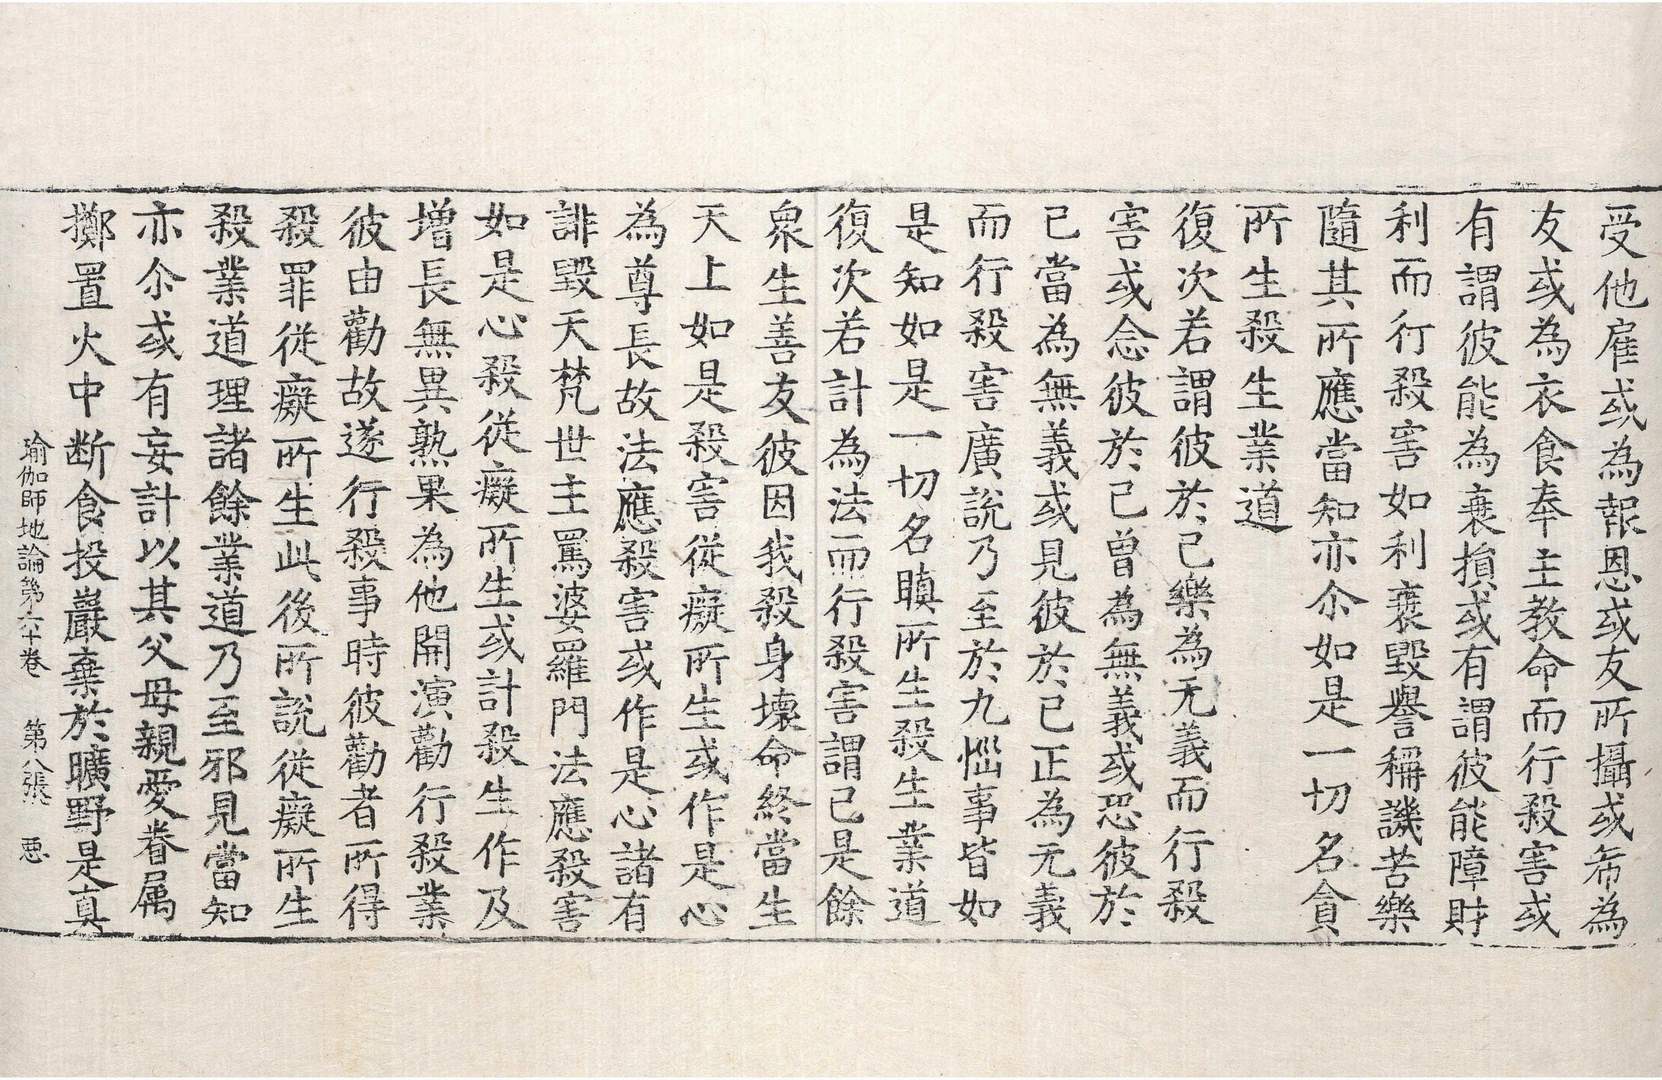 受他雇或為報恩或友所攝或希為
友或為衣食奉主教命而行殺害或
有謂彼能為衰損或有謂彼能障財
利而行殺害如利衰毀譽稱譏苦樂
隨其所應當知亦尒如是一切名貪
所生殺生業道
復次若謂彼於己樂為无義而行殺
害或念彼於己曾為無義或恐彼於
己當為無義或見彼於己正為无義
而行殺害廣說乃至於九惱事皆如
是知如是一切名瞋所生殺生業道
復次若計為法而行殺害謂己是餘
衆生善友彼因我殺身壞命終當生
天上如是殺害從癡所生或作是心
為尊長故法應殺害或作是心諸有
誹毀天梵世主罵婆羅門法應殺害
如是心殺從癡所生或計殺生作及
增長無異熟果為他開演勸行殺業
彼由勸故遂行殺事時彼勸者所得
殺罪從癡所生此後所說從癡所生
殺業道理諸餘業道乃至邪見當知
亦尒或有妄計以其父母親愛眷属
擲置火中断食投巖棄於曠野是真
瑜伽師地論第六十卷 第八張 惡